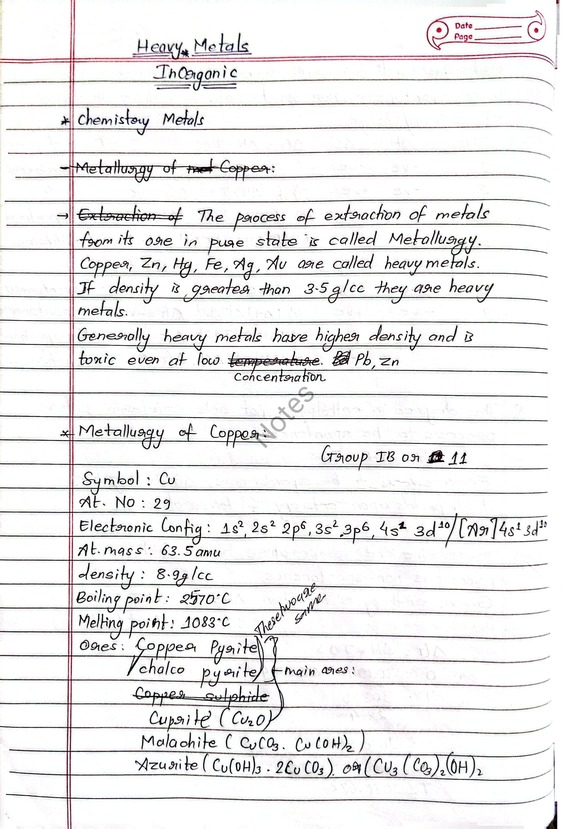 Date
Page
Heavy Metals
Inorganic
* Chemistry Metals
- Metallurgy of Copper:
→ Extraction of The process of extraction of metals
from its ore in pure state is called Metallurgy.
Copper, Zn, Hg, Fe, Ag, Au are called heavy metals.
If density is greater than 3.5g/cc they are heavy
metals.
Generally heavy metals have higher density and is
toxic even at low temperature. Pb, Zn
concentration
Notes
* Metallurgy of Copper:
Group IB or 11
Symbol : Cu
At. No : 29
Electronic Config : 1s², 2s² 2p⁶, 3s², 3p⁶, 4s¹ 3d¹⁰/[Ar]4s¹ 3d¹⁰
At. mass : 63.5 amu
density : 8.9g/cc
Boiling point : 2570°C
Melting point : 1083°C
These two are same
Ores: Copper Pyrite
chalco pyrite main ores:
Copper sulphide
Cuprite (Cu₂O)
Malachite ( CuCO₃. Cu(OH)₂ )
Azurite ( Cu(OH)₃ . 2CuCO₃) or (Cu₃ (CO₃)₂(OH)₂